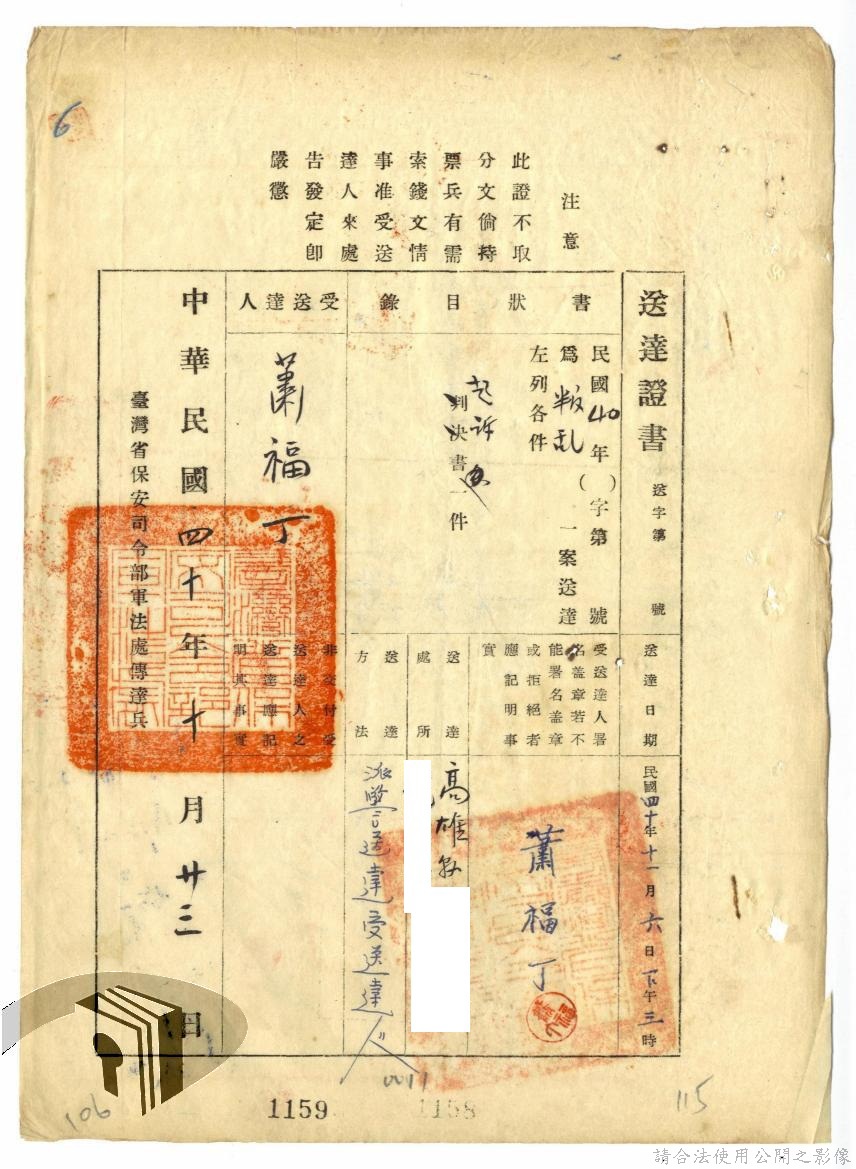 6
注意
此證不取
分文倘持
票兵有需
索錢文情
事准受送
達人來處
告發定卽
嚴懲
送達證書
送字第 號
送達日期
民國四十年十一月六日下午三時
書狀目錄
民國40年( )字第 號
為叛乱 一案送達
左列各件
起訴
判決書一件
受送達人署
名蓋章若不
能署名蓋章
或拒絕者
應記明事
實
蕭福丁
送達處所
高雄縣
送達方法
派警送達受送達人
受送達人
蕭福丁
非交付受
送達人之
送達應記
明其事實
中華民國四十年十月廿三日
臺灣省保安司令部軍法處傳達兵
0011
106
1159
1158
115
請合法使用公開之影像